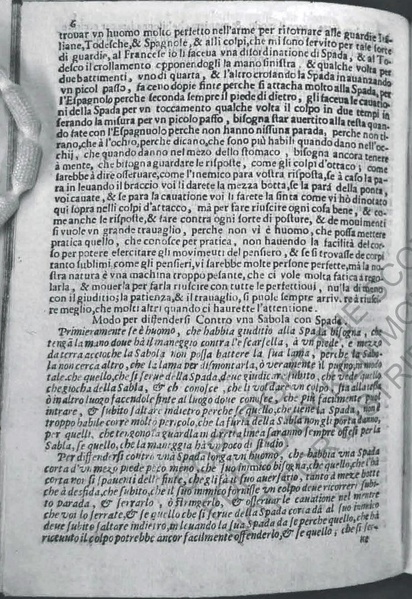 6
trouar vn huomo molto perfetto nell'arme per ritornare alle guardie Ita-
liane, Todesche, & Spagnole, & alli colpi, che mi sono seruito per tale sorte
di guardie, al Francese io li faceua vna disordinazione di Spada, & al To-
desco il crollamento opponendogli la mano sinistra, & qualche volta per
due battimenti, vno di quarta, & l'altro crosando la Spada in auanzando
vn picol passo, faceuo dopie finte perche si attacha molto alla Spada, per
l'Espagnolo perche seconda sempre il piede di dietro, gli faceua le cauatio-
ni della Spada per vn toccamento qualche volta il colpo in due tempi in
serando la misura per vn picolo passo, bisogna star auertito alla testa quan-
do fate con l'Espagnuolo perche non hanno nissuna parada, perche non ti-
rano, che à l'ochio, perche dicano, che sono più habili quando dano nell'oc-
chij, che quando dano nel mezo dello stomaco, bisogna ancora tenere
à mente, che bisogna guardare le risposte, come gli colpi d'ottaco; come
sarebbe à dire osseruare, come l'inemico para vostra risposta, se à caso la pa-
ra in leuando il braccio voi li darete la mezza botta, se la parà della ponta,
voi cauate, & se para la cauatione voi li farete la finta come vi hò dinotato
quì sopra nelli colpi d'attacco, mà per fare riuscire ogni cosa bene, & co-
me anche le risposte, & fare contra ogni sorte di posture, & de mouimenti
si vuole vn grande trauaglio, perche non vi è huomo, che possa mettere
pratica quello, che conosce per pratica, non hauendo la facilità del cor-
so per potere eserçitare gli mouimenti del pensiero, & se si trouasse de corpi
tanto sublimi come gli pensieri, vi sarebbe molte persone perfette, mà la no-
stra natura è vna machina troppo pesante, che ci vole molta fatica à rego-
larla, & mouerla per farla riuscire con tutte le perfettioni, nulla di meno
con il giuditio, la patienza, & il trauaglio, si puole sempre arriuare à riusci-
re meglio, che molti altri quando ci haurette l'attentione.
Modo per difendersi Contro vna Sabola con Spada.
Primieramente se è huomo, che habbia giuditio alla Spada bisogna, che
tengà la mano doue hà il maneggio contra l'escarsella, à vn piede, e mezo
da terra acciòche la Sabola non possa battere la sua lama, perche la Sabo-
la non cerca altro, che la lama per dismontarla, ò veramente il pugno, in modo
tale che quello, che si serue della Spada, deue giudicare subito, che vede gioch-
che gioca della Sabla, & che conosce, che li vol dare vn colpo, sia alla testa
ò in altro luogo facendole finte al luogo doue conosce, che più facilmente può
intrare, & subito saltare indietro perche se quello, che tiene la Spada, non è
troppo habile corre molto pericolo, che la furia della Sabla non gli porta danno,
per quelli, che tengono la guardia in diretta linea saranno sempre offesi per la
Sabla, se quello, che la maneggia hà vn poco di studio.
Per diffendersi contro vna Spada longa vn huomo, che habbia vna Spada
corta d'vn mezo piede poco meno, che suo inimico bisogna, che quello, che l'hà
corta non si spauenti delle finte, che gli fà il suo auersario, tanto à meze botte
che à desfida, che subito, che il suo inimico fornisse vn colpo deue ricorrer subi-
to parada, & serrarlo, ò stringerlo, & osseruare le cauatione nel mentre
che voi lo serrate, & se quello che si serue della Spada corta dà al suo inimico
deue subito saltare indietro, in leuando la sua Spada da se perche quello, che hà
riceuuto il colpo potrebbe ancor facilmente offenderlo, & se quello, che si ser-
ue